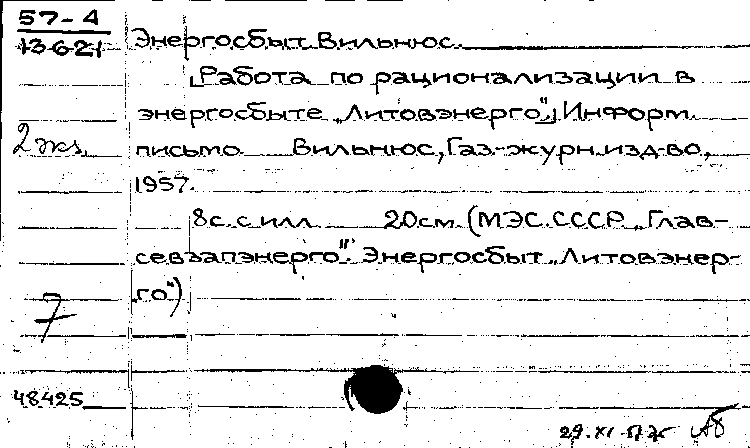 57-4
13621
Энергосбыт. Вильнюс.
[Работа по рационализации в
энергосбыте „Литовэнерго"] Информ.
2 экз.
письмо Вильнюс, Газ.-журн. изд-во,
1957.
8с. с илл 20см. (МЭС. СССР. „Глав-
севзапэнерго". Энергосбыт „Литовэнер-
го")
7
48425
29.XI.57